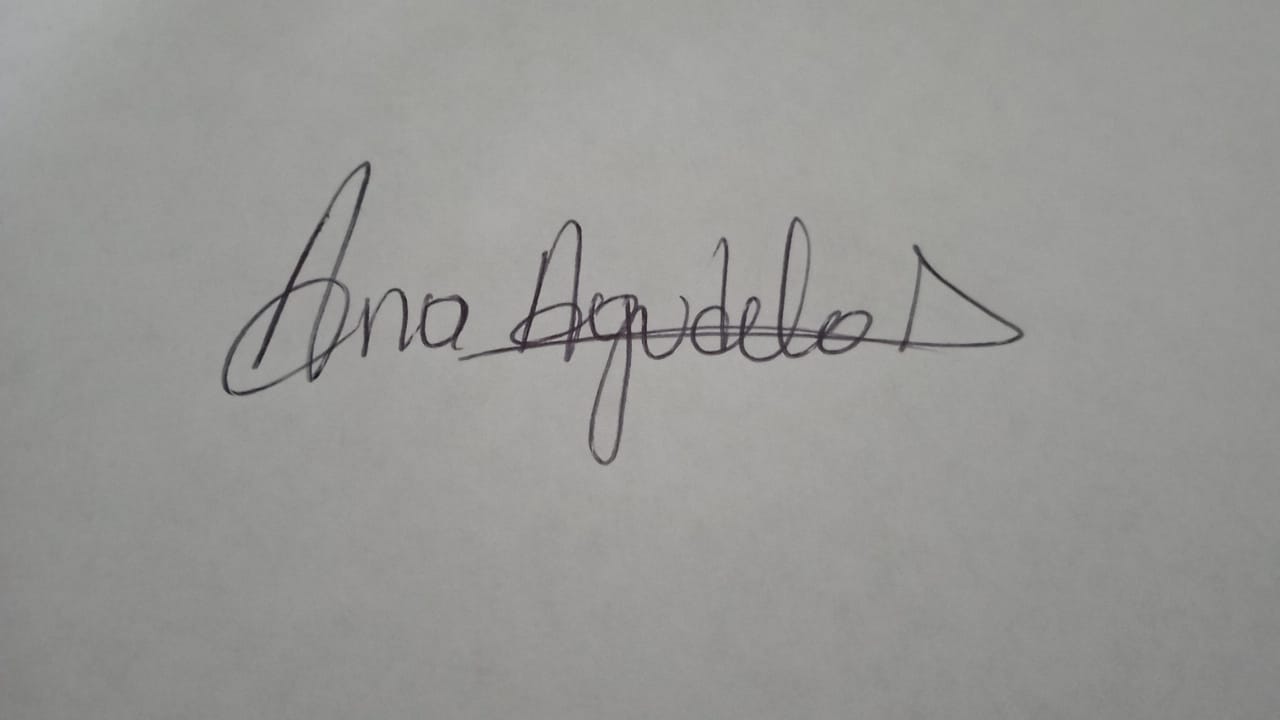 Ana Agudelo D